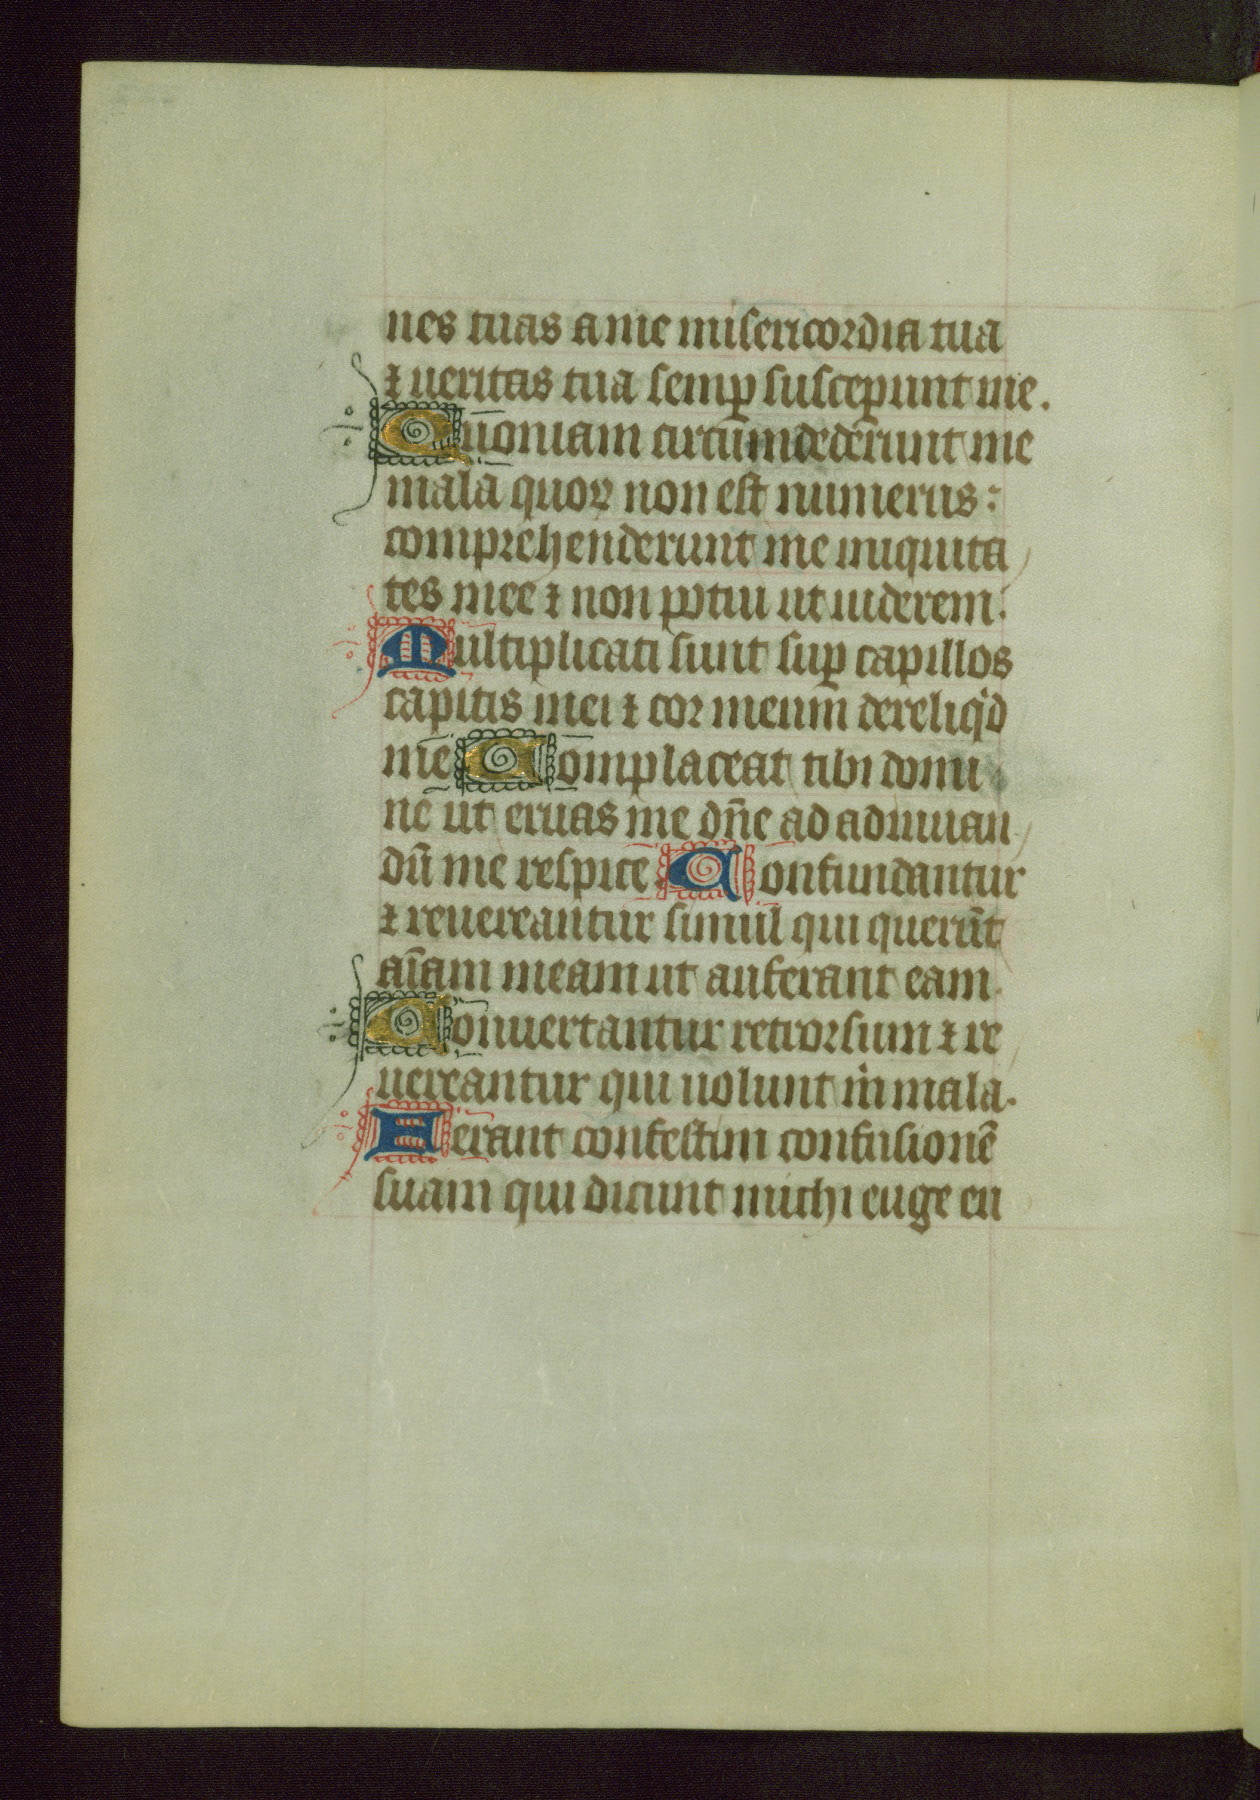 nes tuas a me misericordia tua
⁊ ueritas tua semꝑ susceꝑunt me.
Quoniam circũmdedẽrunt me
mala quoꝝ non est numerus:
comprehenderunt me iniquita
tes mee ⁊ non potui ut uiderem.
Multiplicati sunt suꝑ capillos
capitis mei ⁊ cor meum dereliq'd
me Complaceat tibi domi
ne ut eruas me dñe ad adiuuan
dũ me respice. Confundantur
⁊ reuereantur simul qui querũt
aĩam meam ut auferant eam.
Conuertantur retrorsum ⁊ re
uereantur qui uolunt m̃ mala.
Ferant confestim confusionẽ
suam qui dicunt michi euge eu